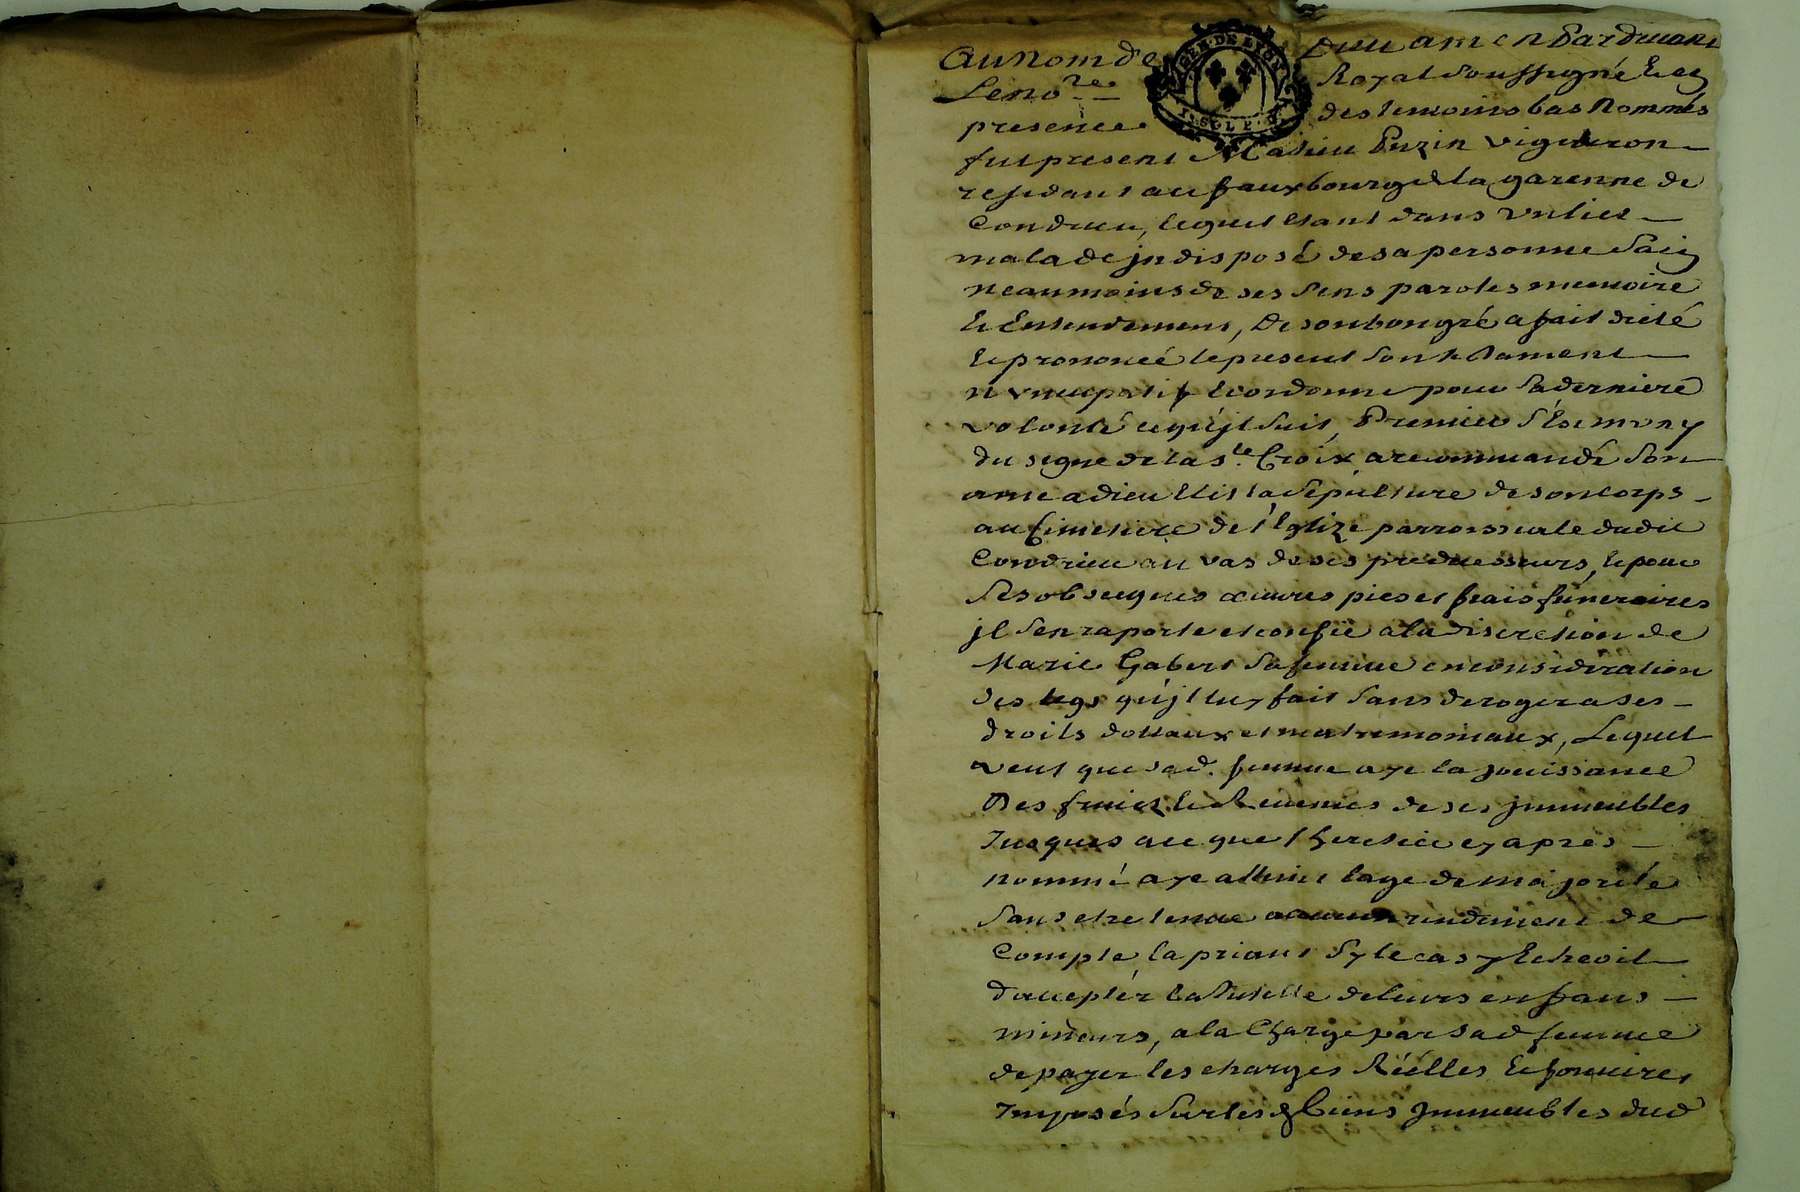 Au nom de Dieu amen Pardevant
Le no.re Royal soussigné Et en
presence des temoins bas Nommés
fut present Mathieu Puzin vigneron
residant au fauxbourg de la garenne de
Condrieu, lequel etant dans un lict
malade jndisposé de sa personne sain
neaumoins de ses sens paroles memoire
Et Entendement, De son bon gré a fait dicté
Et prononcé le present son testament
nuncupatif Et ordonne pour sa derniere
volonté ce qu'jl suit, Premier s'Est muny
du signe de la s.te Croix a recommandé son
ame a dieu Elit la sepulture de son corps
au Cimetiere de l'Eglize parroissiale dudit
Condrieu au vas de ses predecesseurs, Et pour
ses obseques œuvres pies et frais funeraires
jl s'en raporte et confie a la discretion de
Marie Gabert sa femme en consideration
des legs qu'jl luy fait sans deroger a ses
droits dottaux et matrimoniaux, Lequel
veut que sad. femme aye la jouissance
Des fruicts Et Revenus de ses jmmeubles
Jusques a ce que l'heritier cy apres
nommé aye atteint l'age de majorité
sans etre tenue a aucun rendement de
Compte, la priant sy le cas y Echeoit
d'accepter la tutelle de leurs enfans
mineurs, a la Charge par sad femme
de payer les charges Réélles Et foncieres
Imposés sur les biens Jmmeubles dud